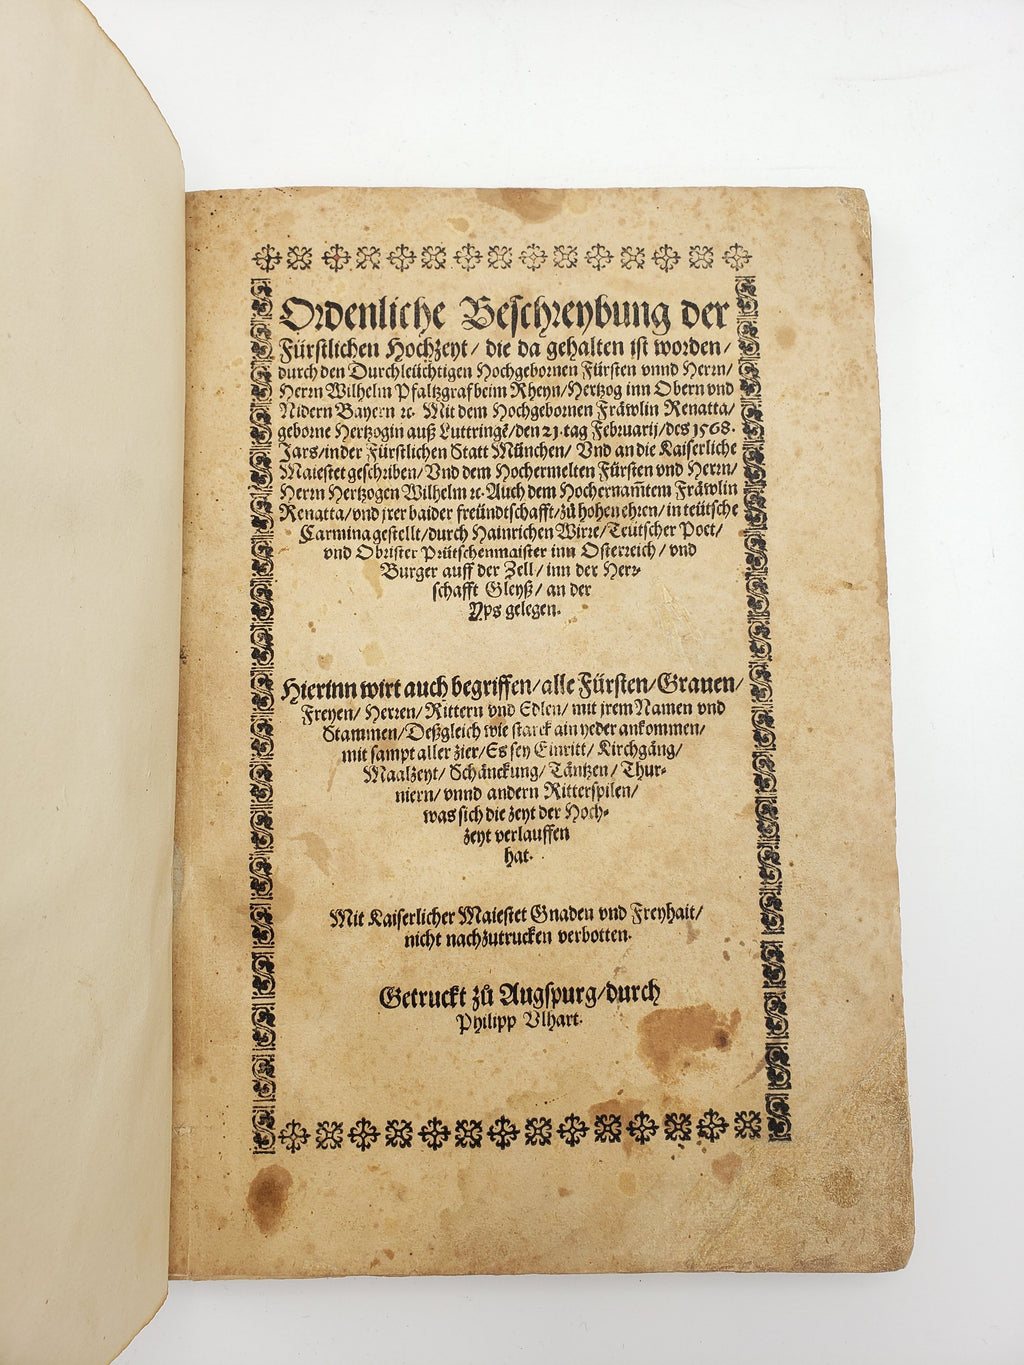 Ordenliche Beschreybung der
Fürstlichen Hochzeyt / die da gehalten ist worden /
durch den Durchleüchtigen Hochgebornen Fürsten vnnd Herrn /
Herrn Wilhelm Pfaltzgraf beim Rheyn / Hertzog inn Obern vnd
Nidern Bayern ꝛc. Mit dem Hochgebornen Fräwlin Renatta /
geborne Hertzogin auß Luttringē / den 21. tag Februarij / des 1568.
Jars / in der Fürstlichen Statt München / Vnd an die Kaiserliche
Maiestet geschriben / Vnd dem Hochermelten Fürsten vnd Herrn /
Herrn Hertzogen Wilhelm ꝛc. Auch dem Hochernam̄tem Fräwlin
Renatta / vnd jrer baider freündtschafft / zů hohen ehren / in teütsche
Carmina gestellt / durch Hainrichen Wirre / Teütscher Poet /
vnd Obrister Prütschenmaister inn Osterreich / vnd
Burger auff der Zell / inn der Herr⸗
schafft Gleyß / an der
Yps gelegen.
Hierinn wirt auch begriffen / alle Fürsten / Grauen /
Freyen / Herren / Rittern vnd Edlen / mit jrem Namen vnd
Stammen / Deßgleich wie starck ain yeder ankommen /
mit sampt aller zier / Es sey Einritt / Kirchgäng /
Maalzeyt / Schänckung / Täntzen / Thur⸗
niern / vnnd andern Ritterspilen /
was sich die zeyt der Hoch⸗
zeyt verlauffen
hat.
Mit Kaiserlicher Maiestet Gnaden vnd Freyhait /
nicht nachzutrucken verbotten.
Getruckt zů Augspurg / durch
Philipp Vlhart.